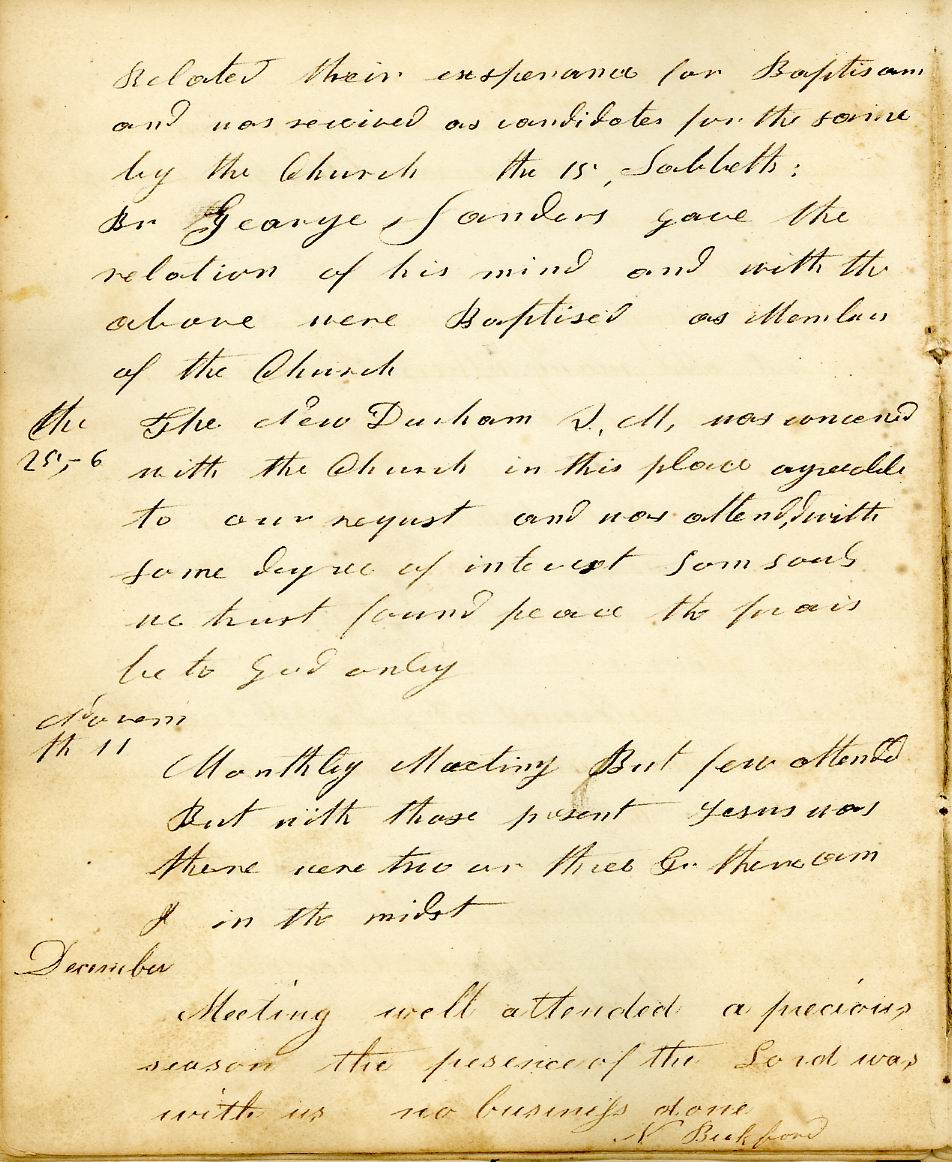 Related their exsperance for Baptisam
and was received as candidates for the same
by the Church the 15, Sabbeth:
Br George Sanders gave the
relation of his mind and with the
above were Baptised as Members
of the Church
the The New Durham Q. M, was
25,-6 with the Church in this place agreeable
to our requst and was attend,d with
some degree of interest som souls
we trust found peace the prais
be to God only
Novem
th 11
Monthly Maeting But few attended
But with those present Jesus was
there were two or three &c there am
I in the midst
December
Meeting well attended a precious
season the pesence of the Lord was
with us no business done
N Bickford